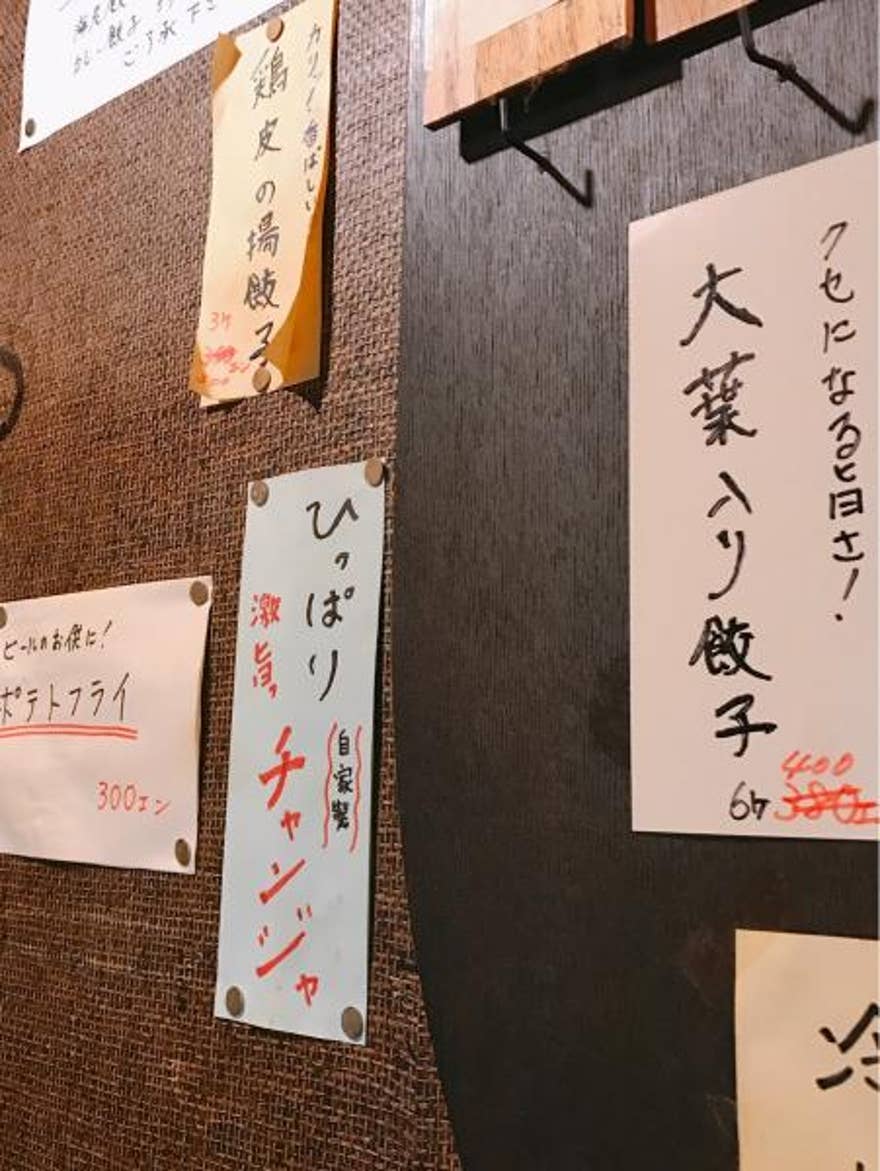 かしこ餃子
ご了承下さ
カリッ!香ばしい
鶏皮の揚餃子
3ケ
エン
ひっぱり
激旨っ
自家製
チャンジャ
ビールのお供に!
ポテトフライ
300エン
クセになる旨さ!
大葉入り餃子
6ケ
400
380エ
冷